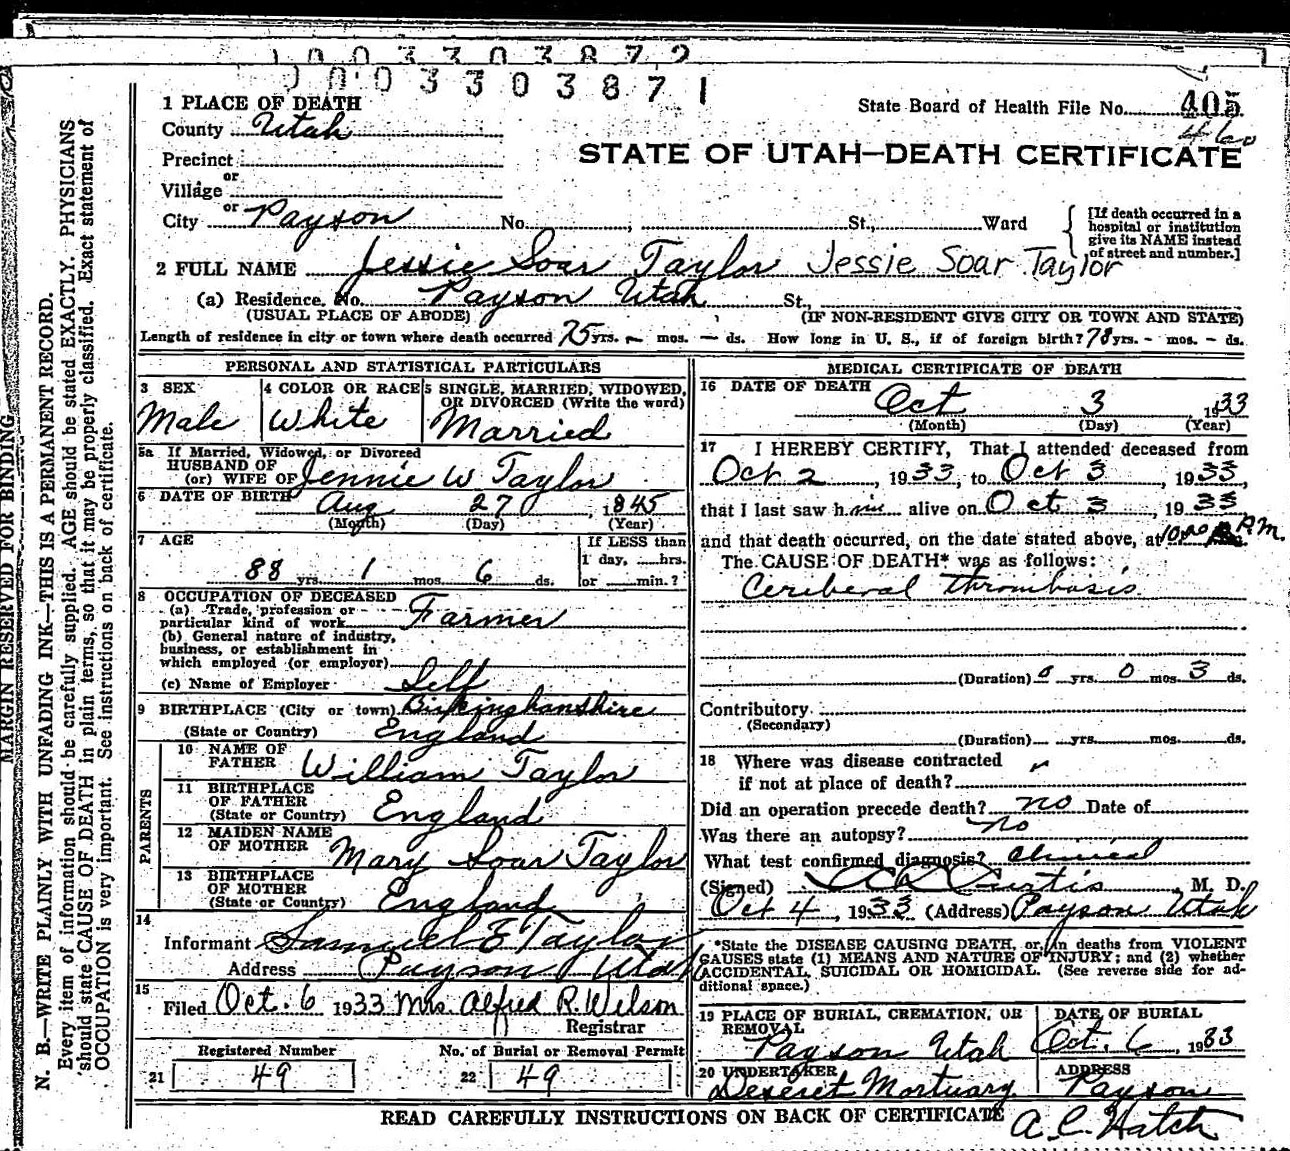 0003303872
0003303871
1 PLACE OF DEATH
State Board of Health File No. 405
460
County Utah
STATE OF UTAH—DEATH CERTIFICATE
Precinct
or
Village
or
City Payson No. St., Ward
[If death occurred in a hospital or institution give its NAME instead of street and number.]
2 FULL NAME Jessie Soar Taylor Jessie Soar Taylor
(a) Residence, No. Payson Utah St.,
(USUAL PLACE OF ABODE) (IF NON-RESIDENT GIVE CITY OR TOWN AND STATE)
Length of residence in city or town where death occurred 75 yrs. — mos. — ds. How long in U. S., if of foreign birth? 78 yrs. - mos. - ds.
PERSONAL AND STATISTICAL PARTICULARS
3 SEX 4 COLOR OR RACE 5 SINGLE, MARRIED, WIDOWED, OR DIVORCED (Write the word)
Male White Married
5a If Married, Widowed, or Divorced
HUSBAND OF
(or) WIFE OF Jennie W Taylor
6 DATE OF BIRTH Aug 27, 1845
(Month) (Day) (Year)
7 AGE If LESS than
1 day, hrs.
88 yrs. 1 mos. 6 ds. or min.?
8 OCCUPATION OF DECEASED
(a) Trade, profession or
particular kind of work Farmer
(b) General nature of industry,
business, or establishment in
which employed (or employer)
(c) Name of Employer Self
9 BIRTHPLACE (City or town)
(State or Country) England
PARENTS
10 NAME OF
FATHER William Taylor
11 BIRTHPLACE
OF FATHER
(State or Country) England
12 MAIDEN NAME
OF MOTHER Mary Soar Taylor
13 BIRTHPLACE
OF MOTHER
(State or Country) England
14
Informant Samuel E Taylor
Address Payson Utah
15
Filed Oct. 6 1933 Mrs. Alfred R. Wilson
Registrar
Registered Number No. of Burial or Removal Permit
21 49 22 49
MEDICAL CERTIFICATE OF DEATH
16 DATE OF DEATH Oct 3, 1933
(Month) (Day) (Year)
17 I HEREBY CERTIFY, That I attended deceased from
Oct 2, 1933, to Oct 3, 1933,
that I last saw him alive on Oct 3, 1933
and that death occurred, on the date stated above, at P.M.
The CAUSE OF DEATH* was as follows:
Cereberal thrombosis
(Duration) 0 yrs. 0 mos. 3 ds.
Contributory
(Secondary)
(Duration) yrs. mos. ds.
18 Where was disease contracted
if not at place of death?
Did an operation precede death? no Date of
Was there an autopsy? no
What test confirmed diagnosis? Clinical
(Signed) Curtis, M. D.
Oct 4, 1933 (Address) Payson Utah
*State the DISEASE CAUSING DEATH, or, in deaths from VIOLENT
CAUSES state (1) MEANS AND NATURE OF INJURY; and (2) whether
ACCIDENTAL, SUICIDAL OR HOMICIDAL. (See reverse side for ad-
ditional space.)
19 PLACE OF BURIAL, CREMATION, OR REMOVAL DATE OF BURIAL
Payson Utah Oct. 6, 1933
20 UNDERTAKER ADDRESS
Deseret Mortuary Payson
READ CAREFULLY INSTRUCTIONS ON BACK OF CERTIFICATE
A. C. Hatch
MARGIN RESERVED FOR BINDING
N. B.—WRITE PLAINLY WITH UNFADING INK—THIS IS A PERMANENT RECORD.
Every item of information should be carefully supplied. AGE should be stated EXACTLY. PHYSICIANS
should state CAUSE OF DEATH in plain terms, so that it may be properly classified. Exact statement of
OCCUPATION is very important. See instructions on back of certificate.